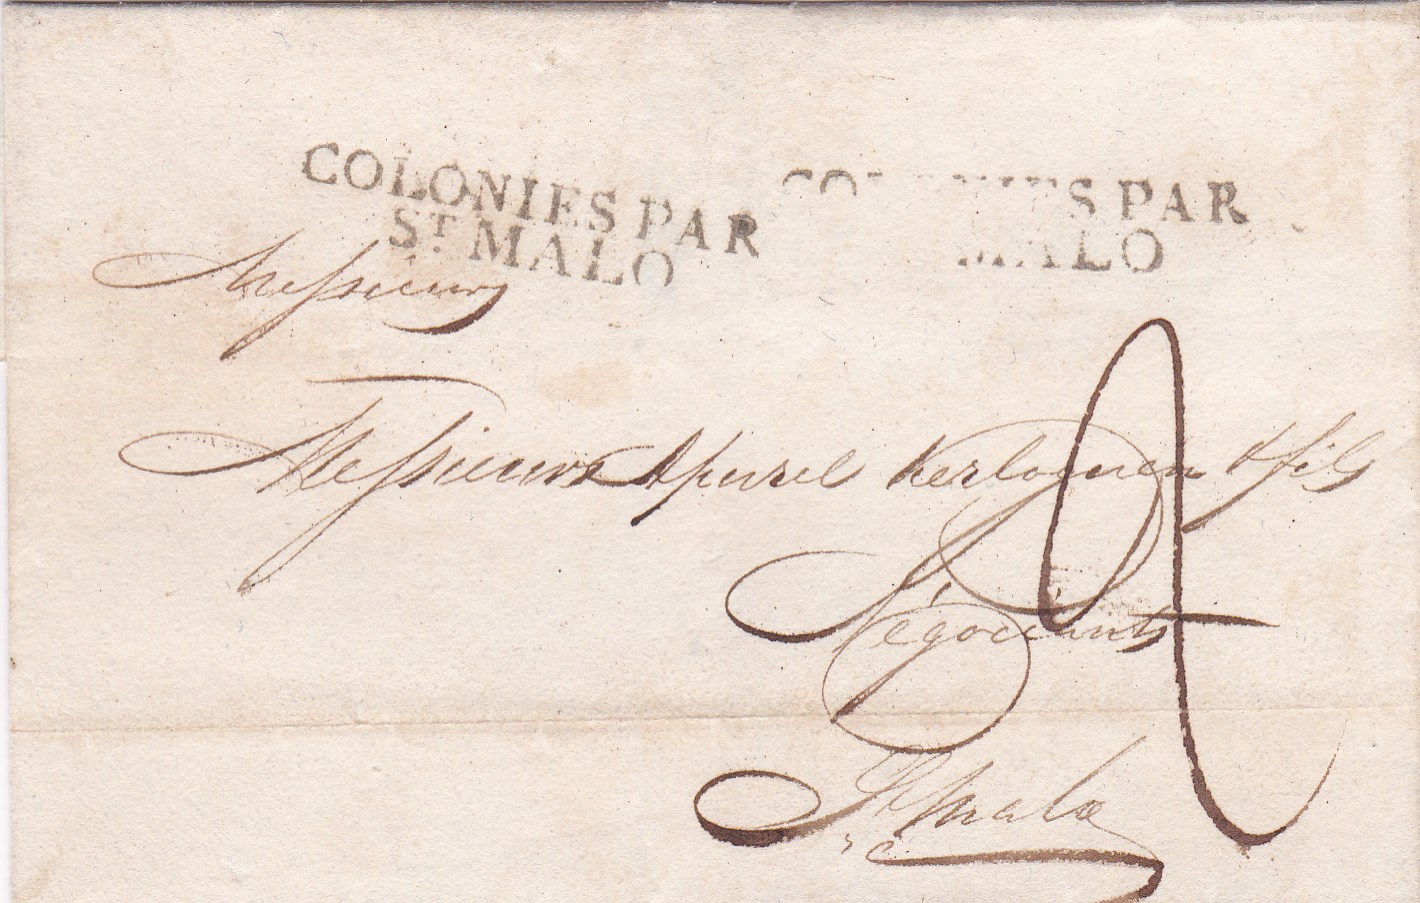 COLONIES PAR
ST. MALO
COLONIES PAR
MALO
Messieurs
Messieurs Apuril Kerloguen & fils
Négociants
St malo